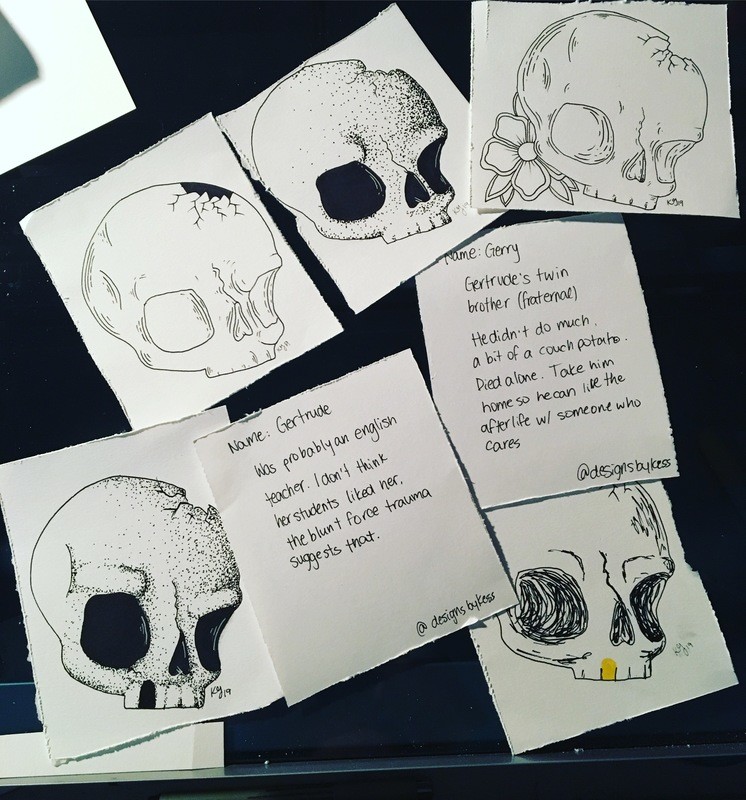 KY19
KY19
KY19
Name: Gerry
Gertrude's twin
brother (fraternal)
He didn't do much,
a bit of a couch potato.
Died alone. Take him
home so he can like the
afterlife w/ someone who
cares
@designsbykess
Name: Gertrude
Was probably an english
teacher. I don't think
her students liked her.
the blunt force trauma
suggests that.
@designsbykess
KY19
KY19